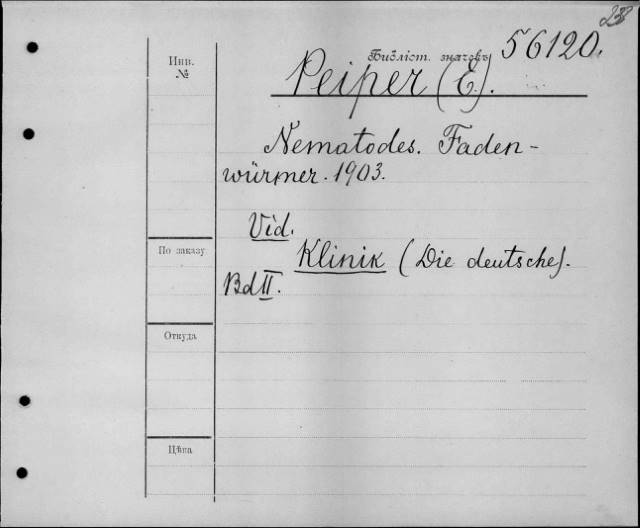 Библіот. значекъ 56120.
Инв.
№
Peiper (E.).
Nematodes. Faden-
würmer. 1903.
Vid.
По заказу
Klinik (Die deutsche).
Bd II.
Откуда
Цѣна